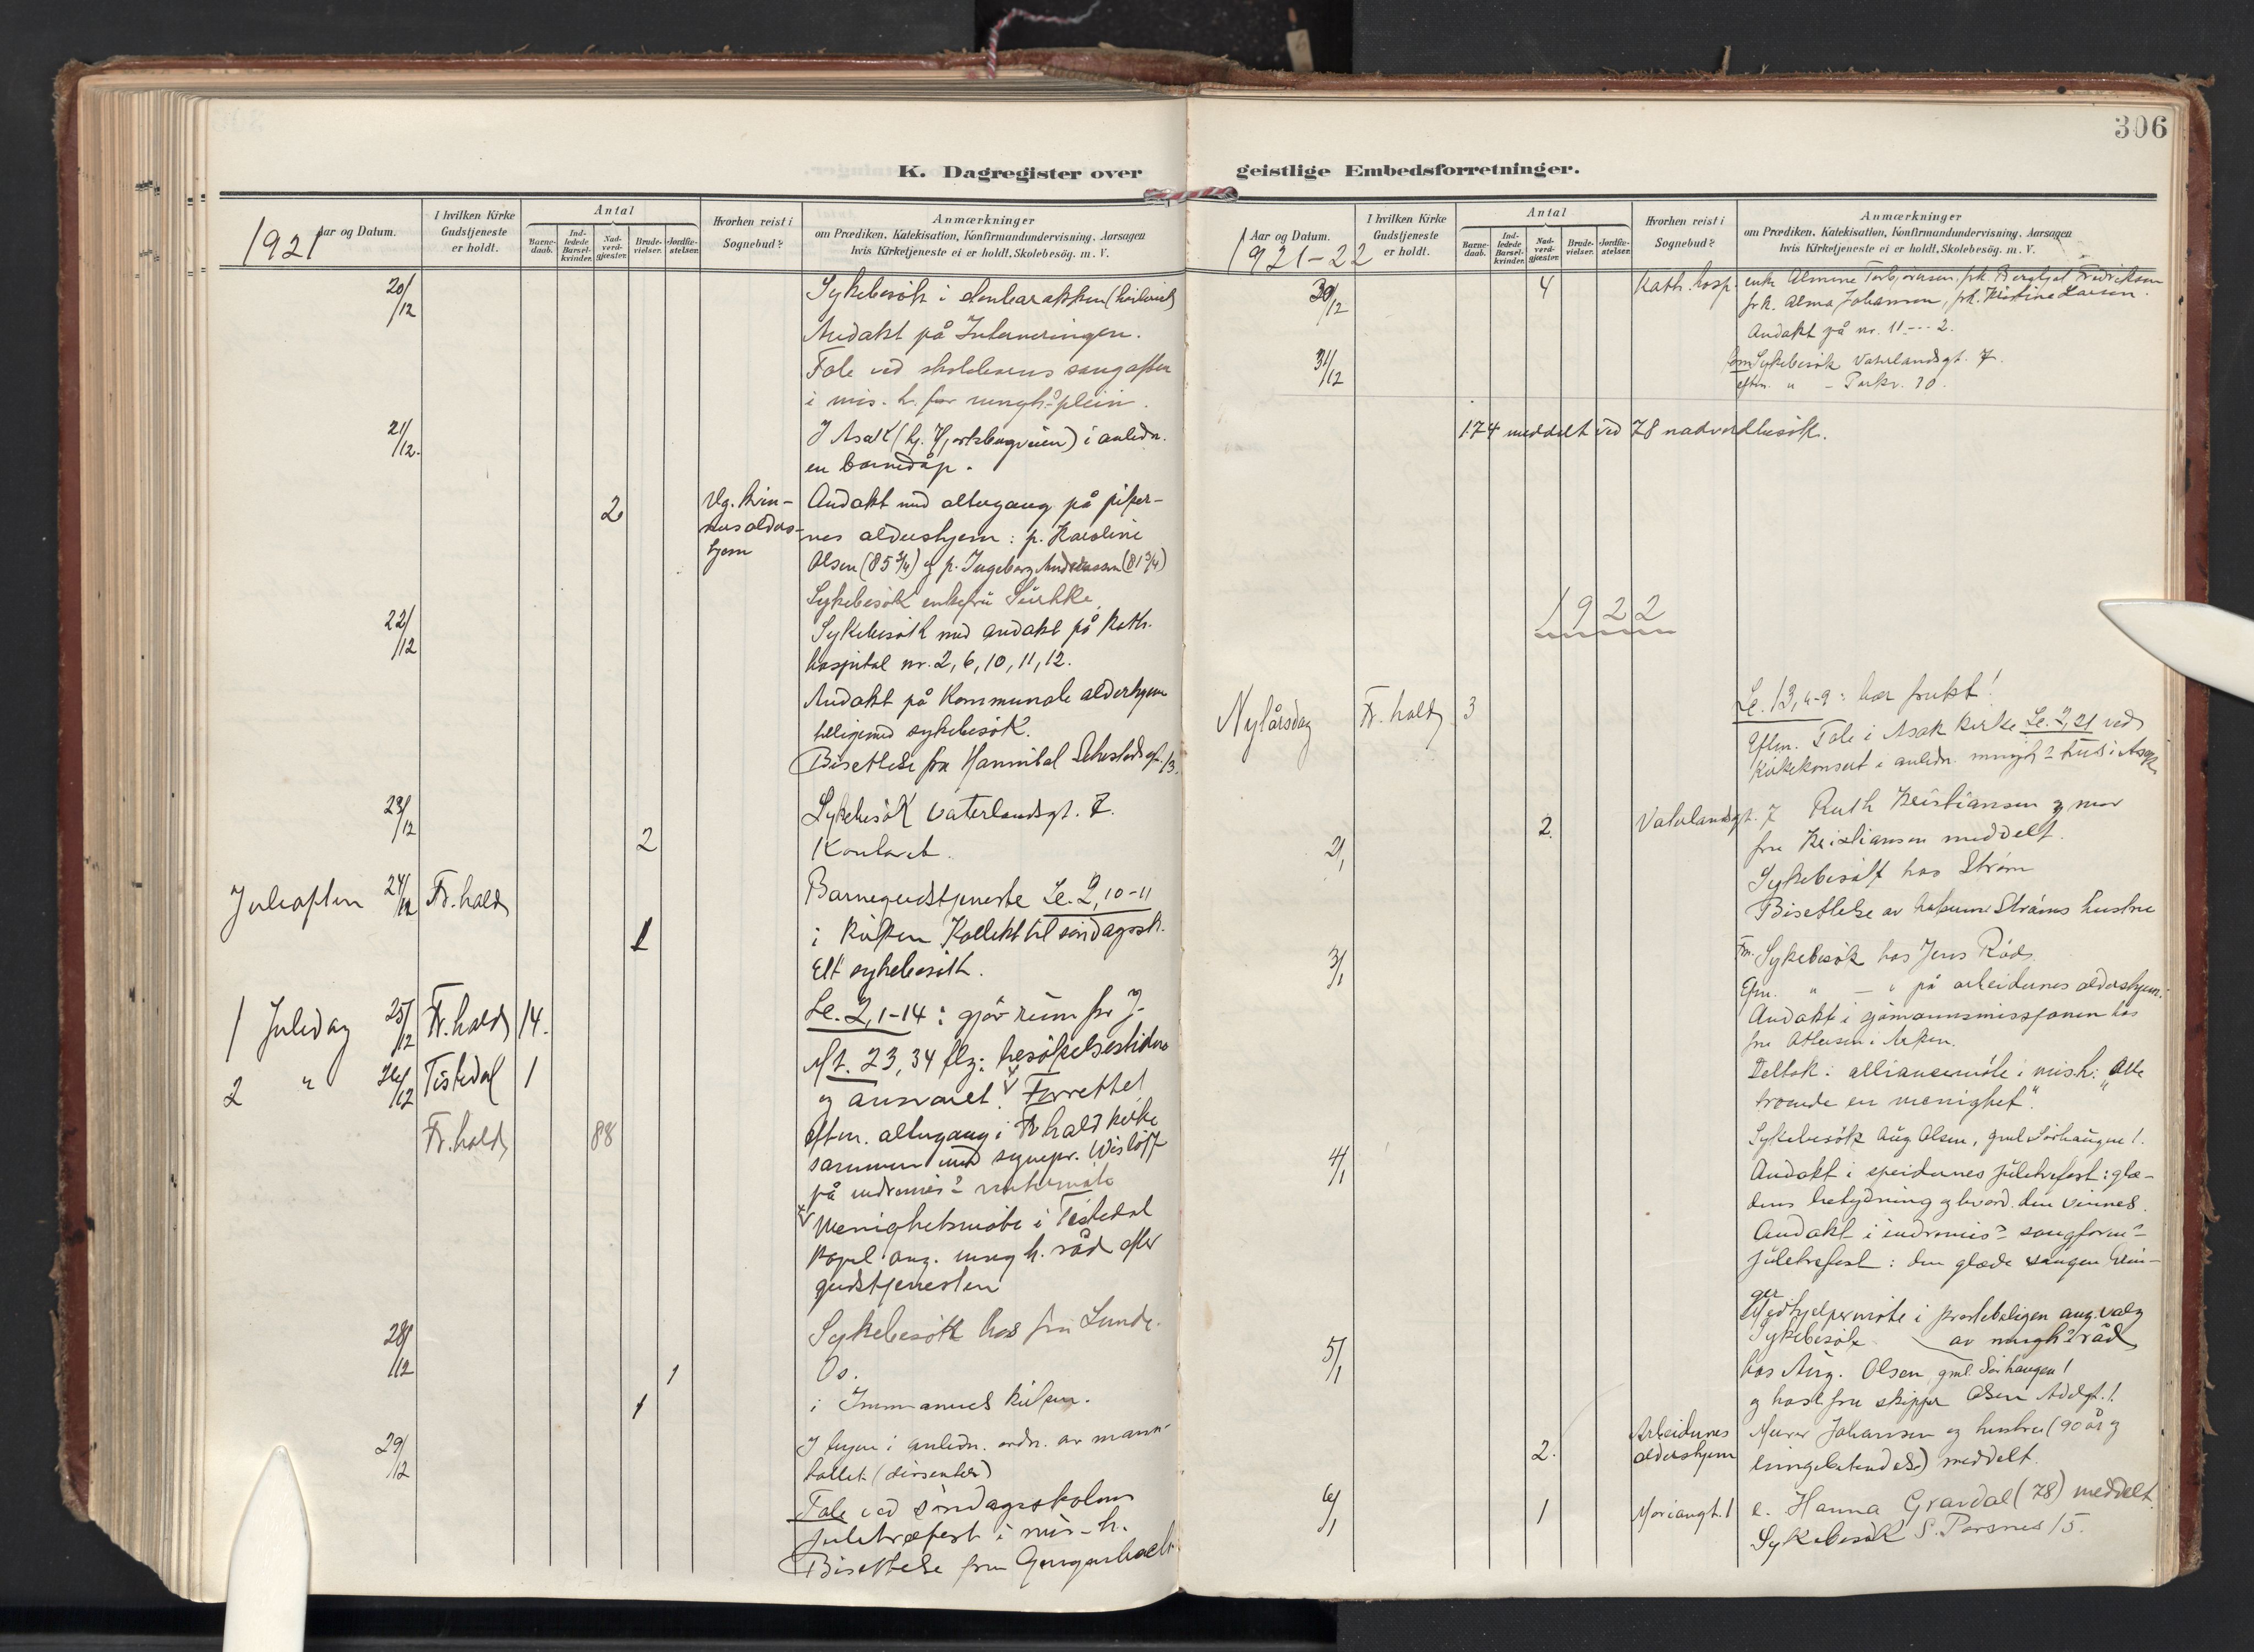 306
K. Dagregister over
geistlige Embedsforretninger.
1921
Aar og Datum.
I hvilken Kirke
Gudstjeneste
er holdt.
Antal
Barne-
daab.
Ind-
ledede
Barsel-
kvinder.
Nad-
verd-
gjester.
Brude-
vielser.
Jordfæ-
stelser.
Hvorhen reist i
Sognebud?
Anmærkninger
om Prædiken, Katekisation, Konfirmandundervisning, Aarsagen
hvis Kirketjeneste ei er holdt, Skolebesög. m. V.
20/12 Sykebesök i
Andakt på Interneringen.
Tale ved skolebarns sangaften
i mis. h. for
21/12. I Asak (hj. Hjortsbergveien) i anledn.
en barnedåp.
2 Vg. Kvin- Andakt med altergang på piker-
nes alders- nes aldershjem: p. Karoline
hjem Olsen (85 3/4) og p. Ingeborg Andreassen (81 3/4)
Sykebesök enkefru
22/12 Sykebesök med andakt på Kath.
hospital nr. 2, 6, 10, 11, 12.
Andakt på Kommunale aldershjem
tilligemed sykebesök.
Bisettelse fra Hannibal Sehestedsgt. 13.
23/12 Sykebesök Vaterlandsgt. 7.
2 Kontoret.
Juleaften 24/12 Fr. hald Barnegudstjeneste Lc. 2, 10-11
1 i kirken Kollekt til söndagssk.
Ett sykebesök.
1 Juledag 25/12 Fr. hald 14. Lc. 2, 1-14: gjör rum for J.
2 " 26/12 Tistedal 1 Mt. 23, 34 flg: besökelsestiden
og ansvaret. Forrettet
Fr. hald 88 eftm. altergang i Fr hald kirke
sammen med sognepr. Wislöff
på indremis
Menighetsmöte i Tistedal
kapel ang. mengh. råd efter
gudstjenesten
28/12 Sykebesök hos fru Lunde.
1 Os.
1 i Immanuels kirken.
29/12 I byen i anledn. ordn. av mann-
tallet (dissenter)
Tale ved söndagsskolens
juletræfest i mis-h.
Bisettelse fra
1921-22
Aar og Datum.
I hvilken Kirke
Gudstjeneste
er holdt.
Antal
Barne-
daab.
Ind-
ledede
Barsel-
kvinder.
Nad-
verd-
gjester.
Brude-
vielser.
Jordfæ-
stelser.
Hvorhen reist i
Sognebud?
Anmærkninger
om Prædiken, Katekisation, Konfirmandundervisning, Aarsagen
hvis Kirketjeneste ei er holdt, Skolebesög. m. V.
30/12 4 Kath. hosp. enke Almine Torbjörnsen, frk. Bergljot Fredriksen
frk. Alma Johansen, frk. Kristine Larsen.
Andakt på nr. 11 --- 2.
31/12 fm Sykebesök Vaterlandsgt. 7.
eftm. " - Parkv. 10.
174 meddelt ved 78 nadverdbesök.
1922
Nytårsdag Fr. hald 3 Lc. 13, 6-9: bær frukt!
Eftm. Tale i Asak kirke Lc. 2, 21 ved
kirkekonsert i anledn. mengh. hus i Asak
2/1 2. Vaterlandsgt. 7 Ruth Kristiansen og mor
fru Kristiansen meddelt.
Sykebesök hos Ström
Bisettelse av Ströms hustru
3/1 Fm. Sykebesök hos Jens Röds.
Efm. " - " på arbeidernes aldershjem.
Andakt i sjömannsmissjonen hos
fru Ottesen i
Deltok i alliancemöte i mis.h: "Alle
troende en menighet".
4/1 Sykebesök Aug Olsen, gml Sörhaugen 1.
Andakt i speidernes juletrefest: glæ-
dens betydning og hvord. den vinnes.
Andakt i indremis sangforen
juletrefest: den glæde sangen brin-
ger
Medhjelpermöte i prosteboligen ang. valg
av mengh. råd
5/1 Sykebesök
hos Aug. Olsen gml. Sörhaugen 1
og hos fru skipper Olsen Adelgt. 1.
2. Arbeidernes Murer Johansen og hustru (90 år og
aldershjem sengeliggende) meddelt.
6/1 1 Moriangt. 1 e. Hanna Gravdal (78) meddelt.
Sykebesök S. Porsnes 15.